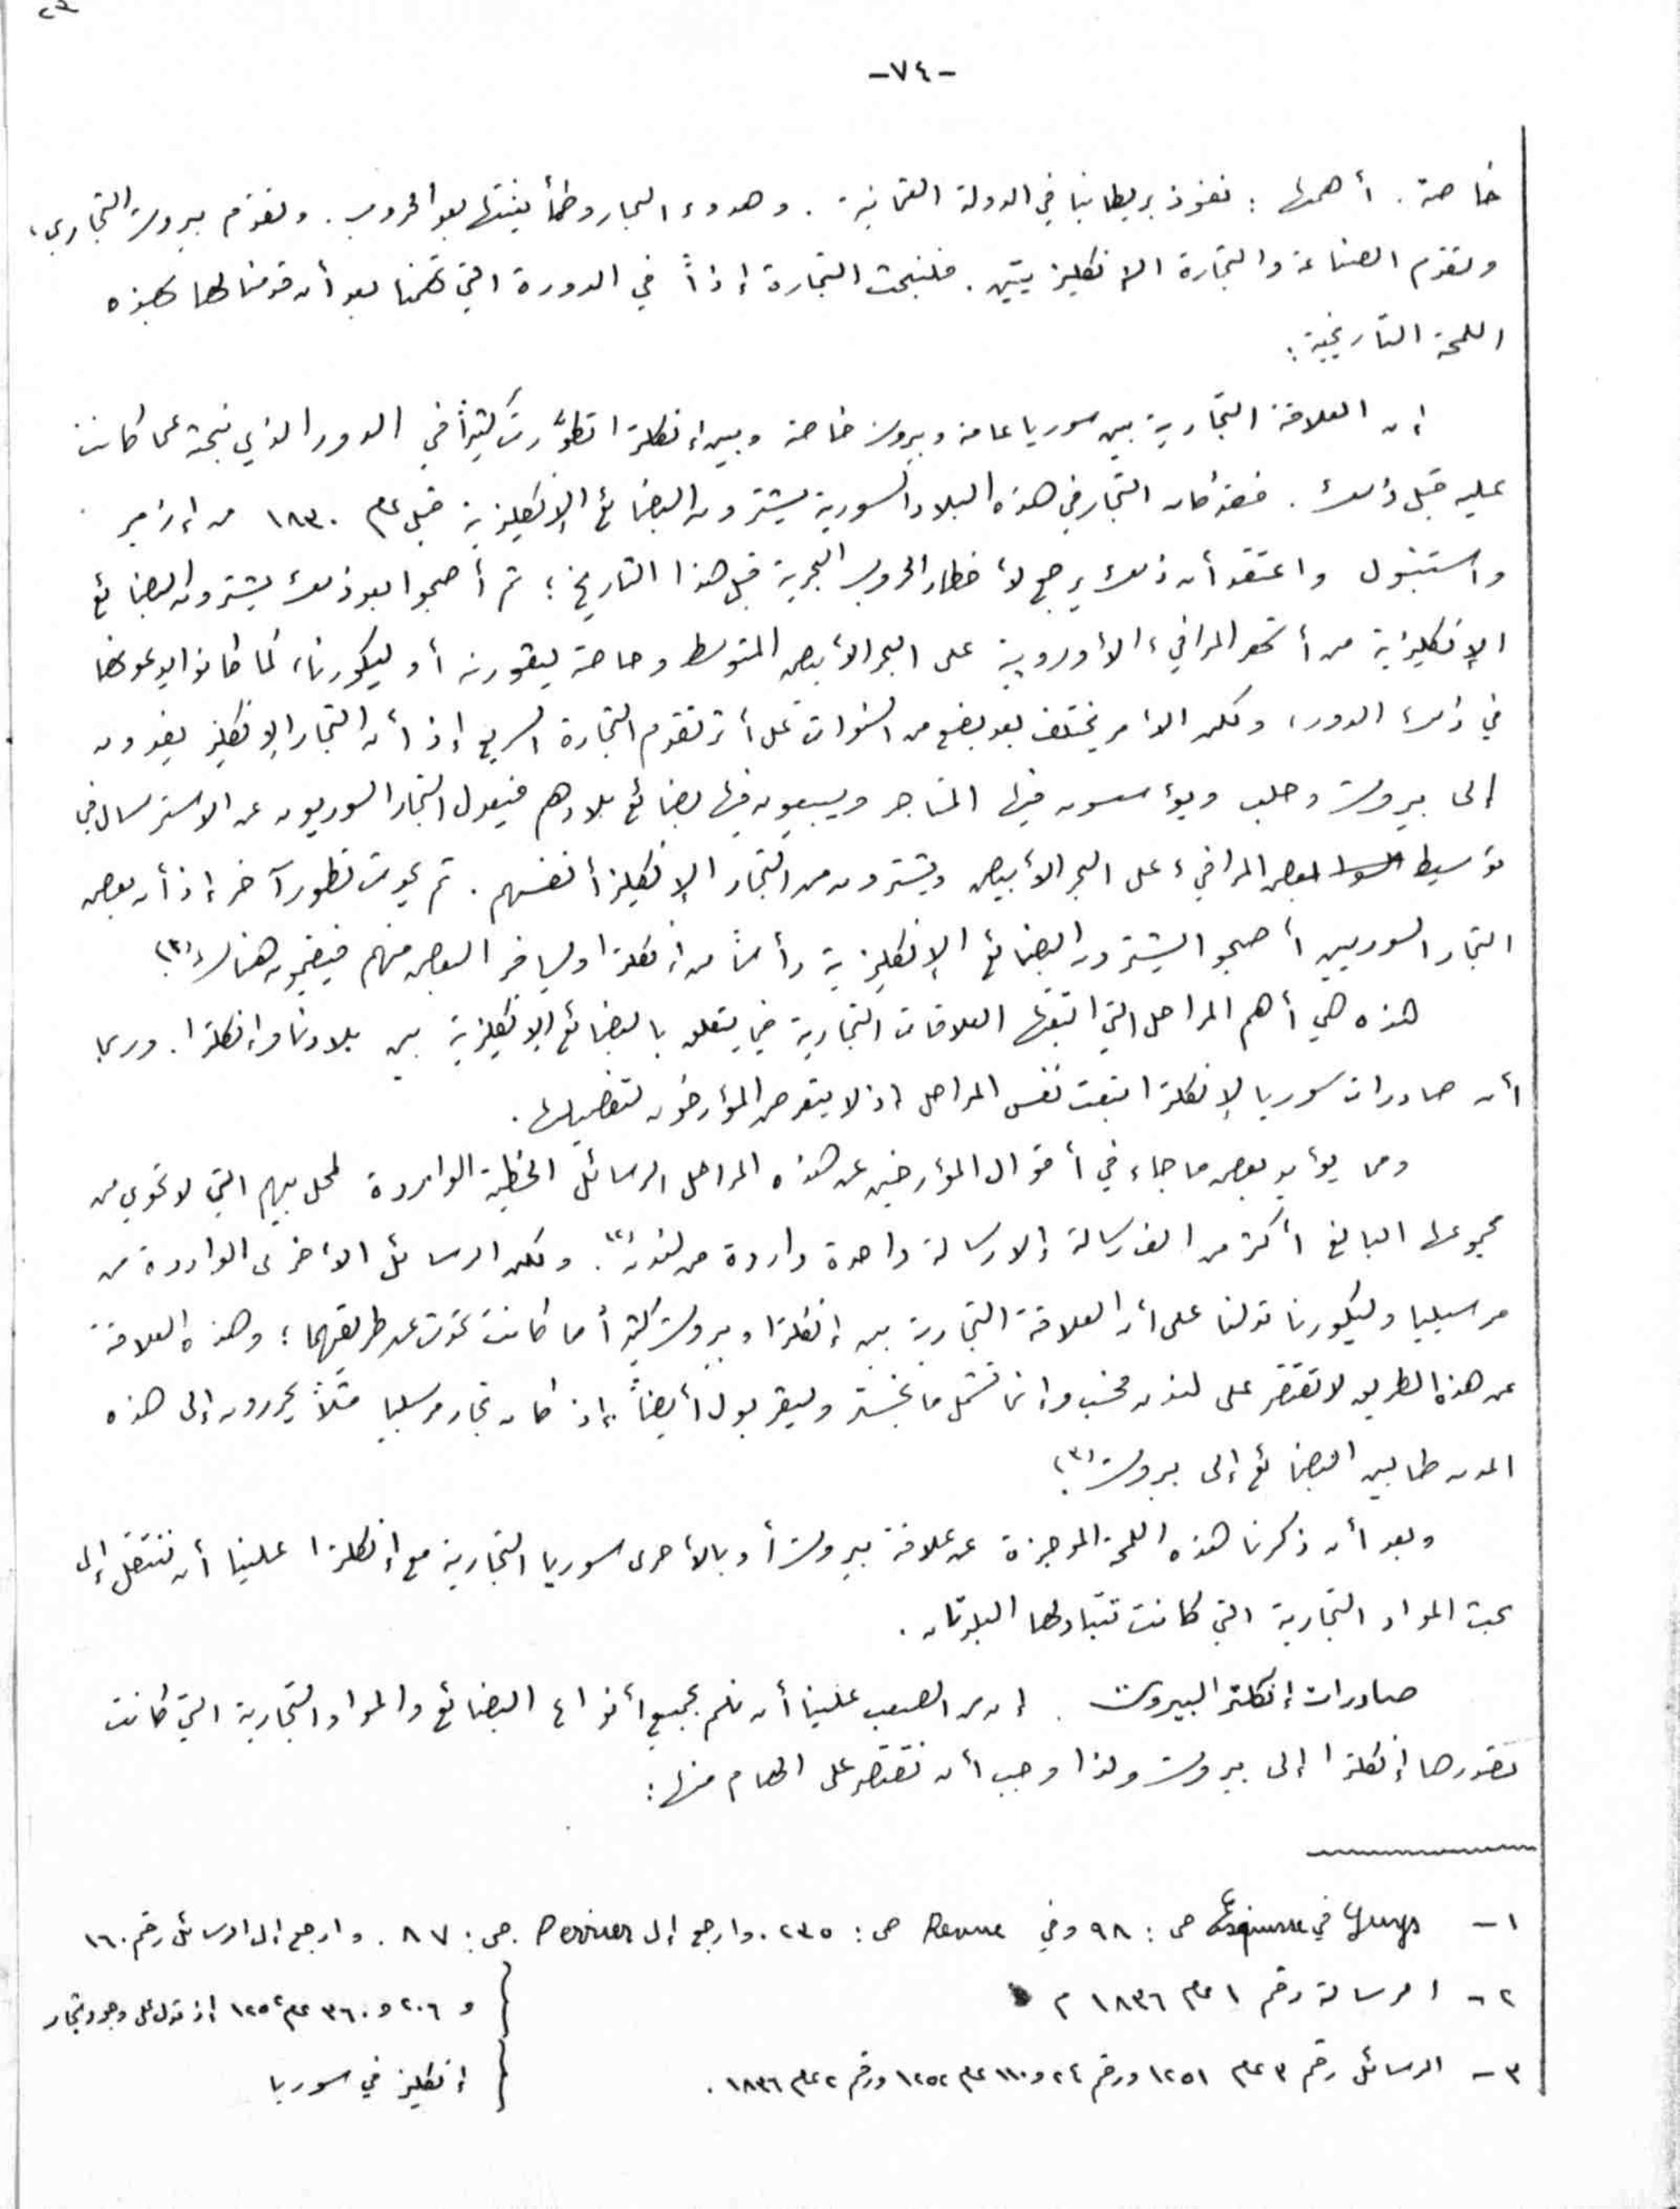 -٧٤-
خاصة. أهمها: نفوذ بريطانيا في الدولة العثمانية. وهدوء البحار وطمأنينتها بعد الحروب. وتقدم بيروت التجاري،
وتقدم الصناعة والتجارة الإنكليزيتين. فلنبحث التجارة إذاً في الدورة التي تهمنا بعد أن قدمنا لها بهذه
اللمحة التاريخية:
إن العلاقة التجارية بين سوريا عامة وبيروت خاصة وبين إنكلترا تطوّرت كثيراً في الدور الذي نبحثه عما كانت
عليه قبل ذلك. فقد كان التجار في هذه البلاد السورية يشترون البضائع الإنكليزية قبل عام ١٨٣٠ من إزمير
واستنبول واعتقد أن ذلك يرجع لأخطار الحروب البحرية قبل هذا التاريخ؛ ثم أصبحوا بعد ذلك يشترون البضائع
الإنكليزية من أشهر المرافيء الأوروبية على البحر الأبيض المتوسط وخاصة ليفورنه أو ليكورنا، كما كانوا يدعونها
في ذلك الدور، ولكن الأمر يختلف بعد بضع من السنوات على أثر تقدم التجارة السريع إذ أن التجار الإنكليز يفدون
إلى بيروت وحلب ويؤسسون فيها المتاجر ويبيعون فيها بضائع بلادهم فيعدل التجار السوريون عن الاسترسال في
توسيط بعض المرافيء على البحر الأبيض ويشترون من التجار الإنكليز أنفسهم. ثم يحدث تطور آخر إذ أن بعض
التجار السوريين أصبحوا يشترون البضائع الإنكليزية رأساً من إنكلترا ويسافر البعض منهم فيقيمون هناك (١).
هذه هي أهم المراحل التي اتبعتها العلاقات التجارية فيما يتعلق بالبضائع الإنكليزية بين بلادنا وإنكلترا. وربما
أن صادرات سوريا لإنكلترا اتبعت نفس المراحل إذ لا يتعرض المؤرخون لتفصيلها.
ومما يؤيد بعض ما جاء في أقوال المؤرخين عن هذه المراحل الرسائل الخطية الواردة لمحل بيهم التي لا تحوي من
مجموعها البالغ أكثر من ألف رسالة إلا رسالة واحدة واردة من لندن (٢). ولكن الرسائل الأخرى الواردة من
مرسيليا وليكورنا تدلنا على أن العلاقة التجارية بين إنكلترا وبيروت كثيراً ما كانت تحدث عن طريقهما؛ وهذه العلاقة
عن هذه الطريق لا تقتصر على لندن فحسب وإنما تشمل مانجستر وليفربول أيضاً، إذ كان تجار مرسيليا مثلاً يحررون إلى هذه
المدن طالبين البضائع إلى بيروت (٣).
وبعد أن ذكرنا هذه اللمحة الموجزة عن علاقة بيروت أو بالأحرى سوريا التجارية مع إنكلترا علينا أن ننتقل إلى
بحث المواد التجارية التي كانت تتبادلها البلدتان.
صادرات إنكلترا لبيروت. إن من الصعب علينا أن نلم بجميع أنواع البضائع والمواد التجارية التي كانت
تصدرها إنكلترا إلى بيروت ولذا وجب أن نقتصر على الهام منها:
١- Guys في Esquisse ص: ٩٨ وفي Revue ص: ٢٣٥. وارجع إلى Perrier ص: ٨٧. وارجع إلى الرسائل رقم ١٦٠
و ٢٠٦ و ٣٦٠ عام ١٢٥٢ إذ تدل على وجود تجار
إنكليز في سوريا
٢- الرسالة رقم ١ عام ١٨٣٦ م
٣- الرسائل رقم ٣ عام ١٢٥١ ورقم ٢٤ و ١١٠ عام ١٢٥٢ ورقم ٢ عام ١٨٣٦.